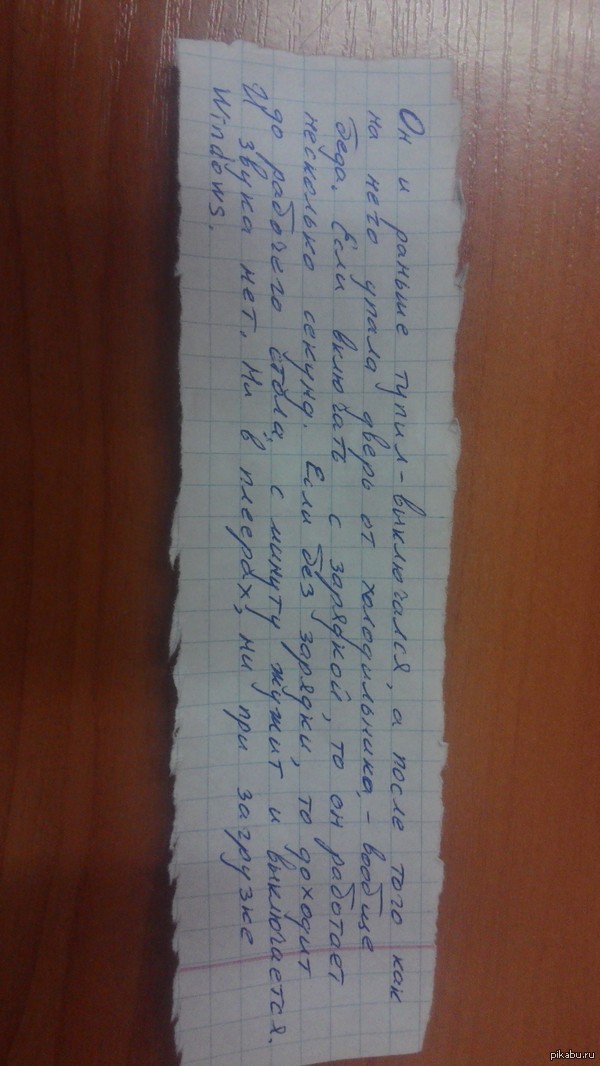 Он и раньше тупил - выключался, а после того как
на него упала дверь от холодильника, - вообще
беда. Если включать с зарядкой, то он работает
несколько секунд. Если без зарядки, то доходит
до рабочего стола, с минуту жужит и выключается.
И звука нет. Ни в плеерах, ни при загрузке
Windows.
pikabu.ru